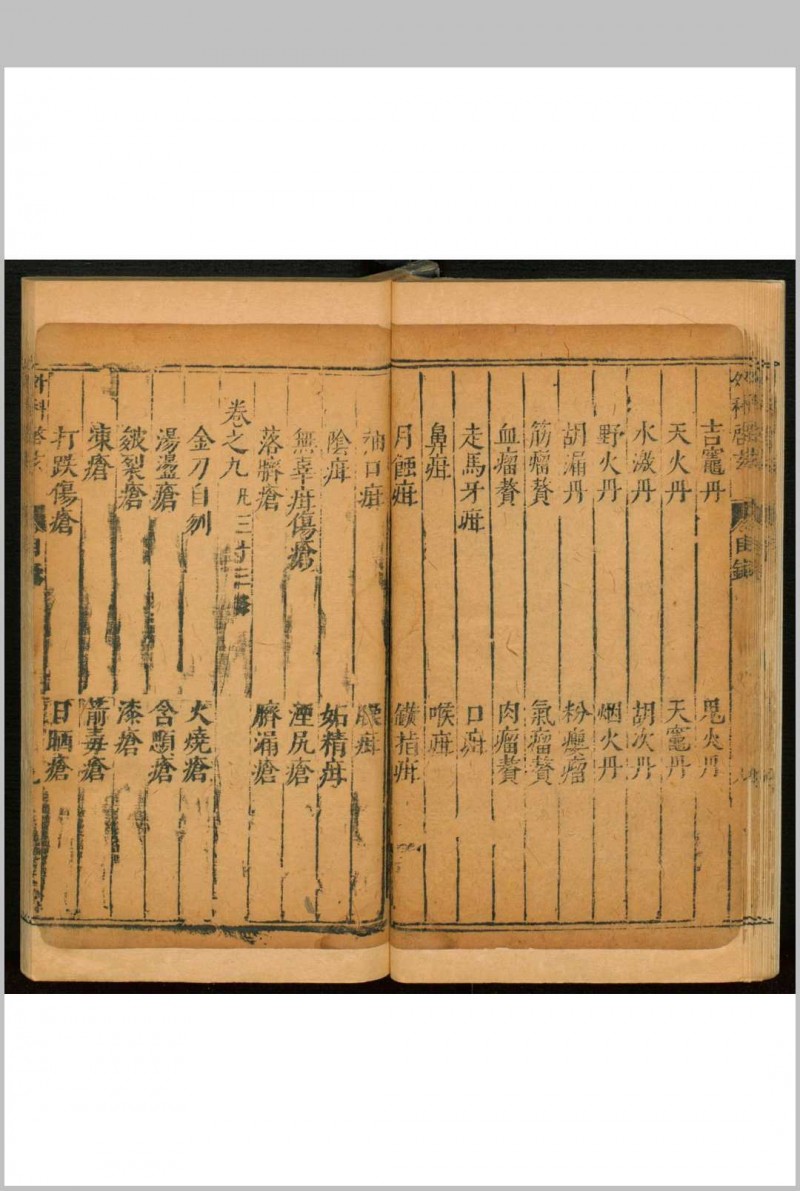 吉竈丹 鬼火丹
天火丹 天竈丹
水激丹 胡次丹
野火丹 烟火丹
胡漏丹 粉瘿瘤
筋瘤贅 氣瘤贅
血瘤贅 肉瘤贅
走馬牙疳 口疳
鼻疳 喉疳
月蝕疳 鑚指疳
袖口疳
陰疳 妬精疳
無辜疳傷瘡 湮尻瘡
落臍瘡 臍漏瘡
卷之九 凡三十三
金刀自刎 火燒瘡
湯盪瘡 含顋瘡
皴裂瘡 漆瘡
凍瘡 箭毒瘡
打跌傷瘡 日晒瘡
外科啓玄 目錄